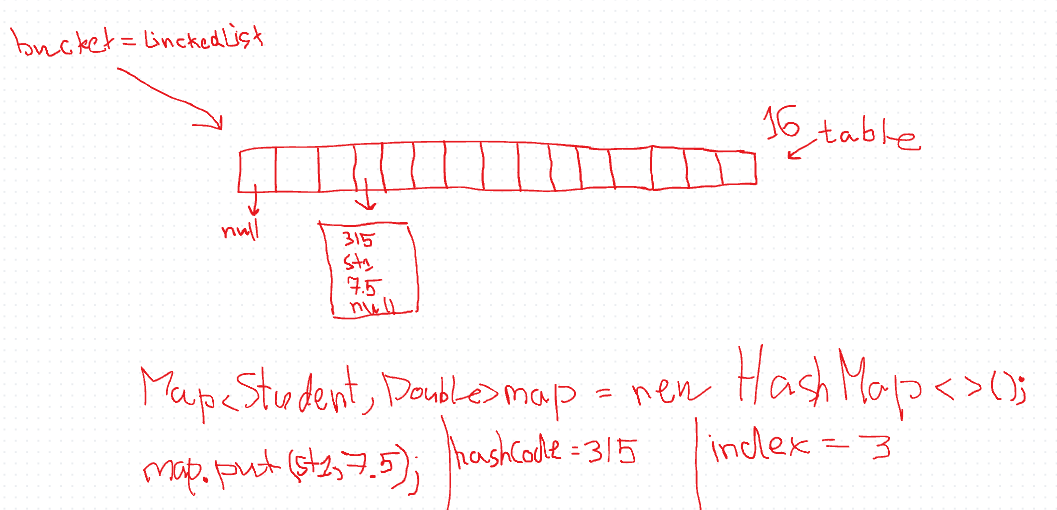 bucket = LinckedList
16 table
null
315
st1
7.5
null
Map<Student, Double> map = new HashMap<>();
map.put(st1, 7.5); hashCode = 315 index = 3